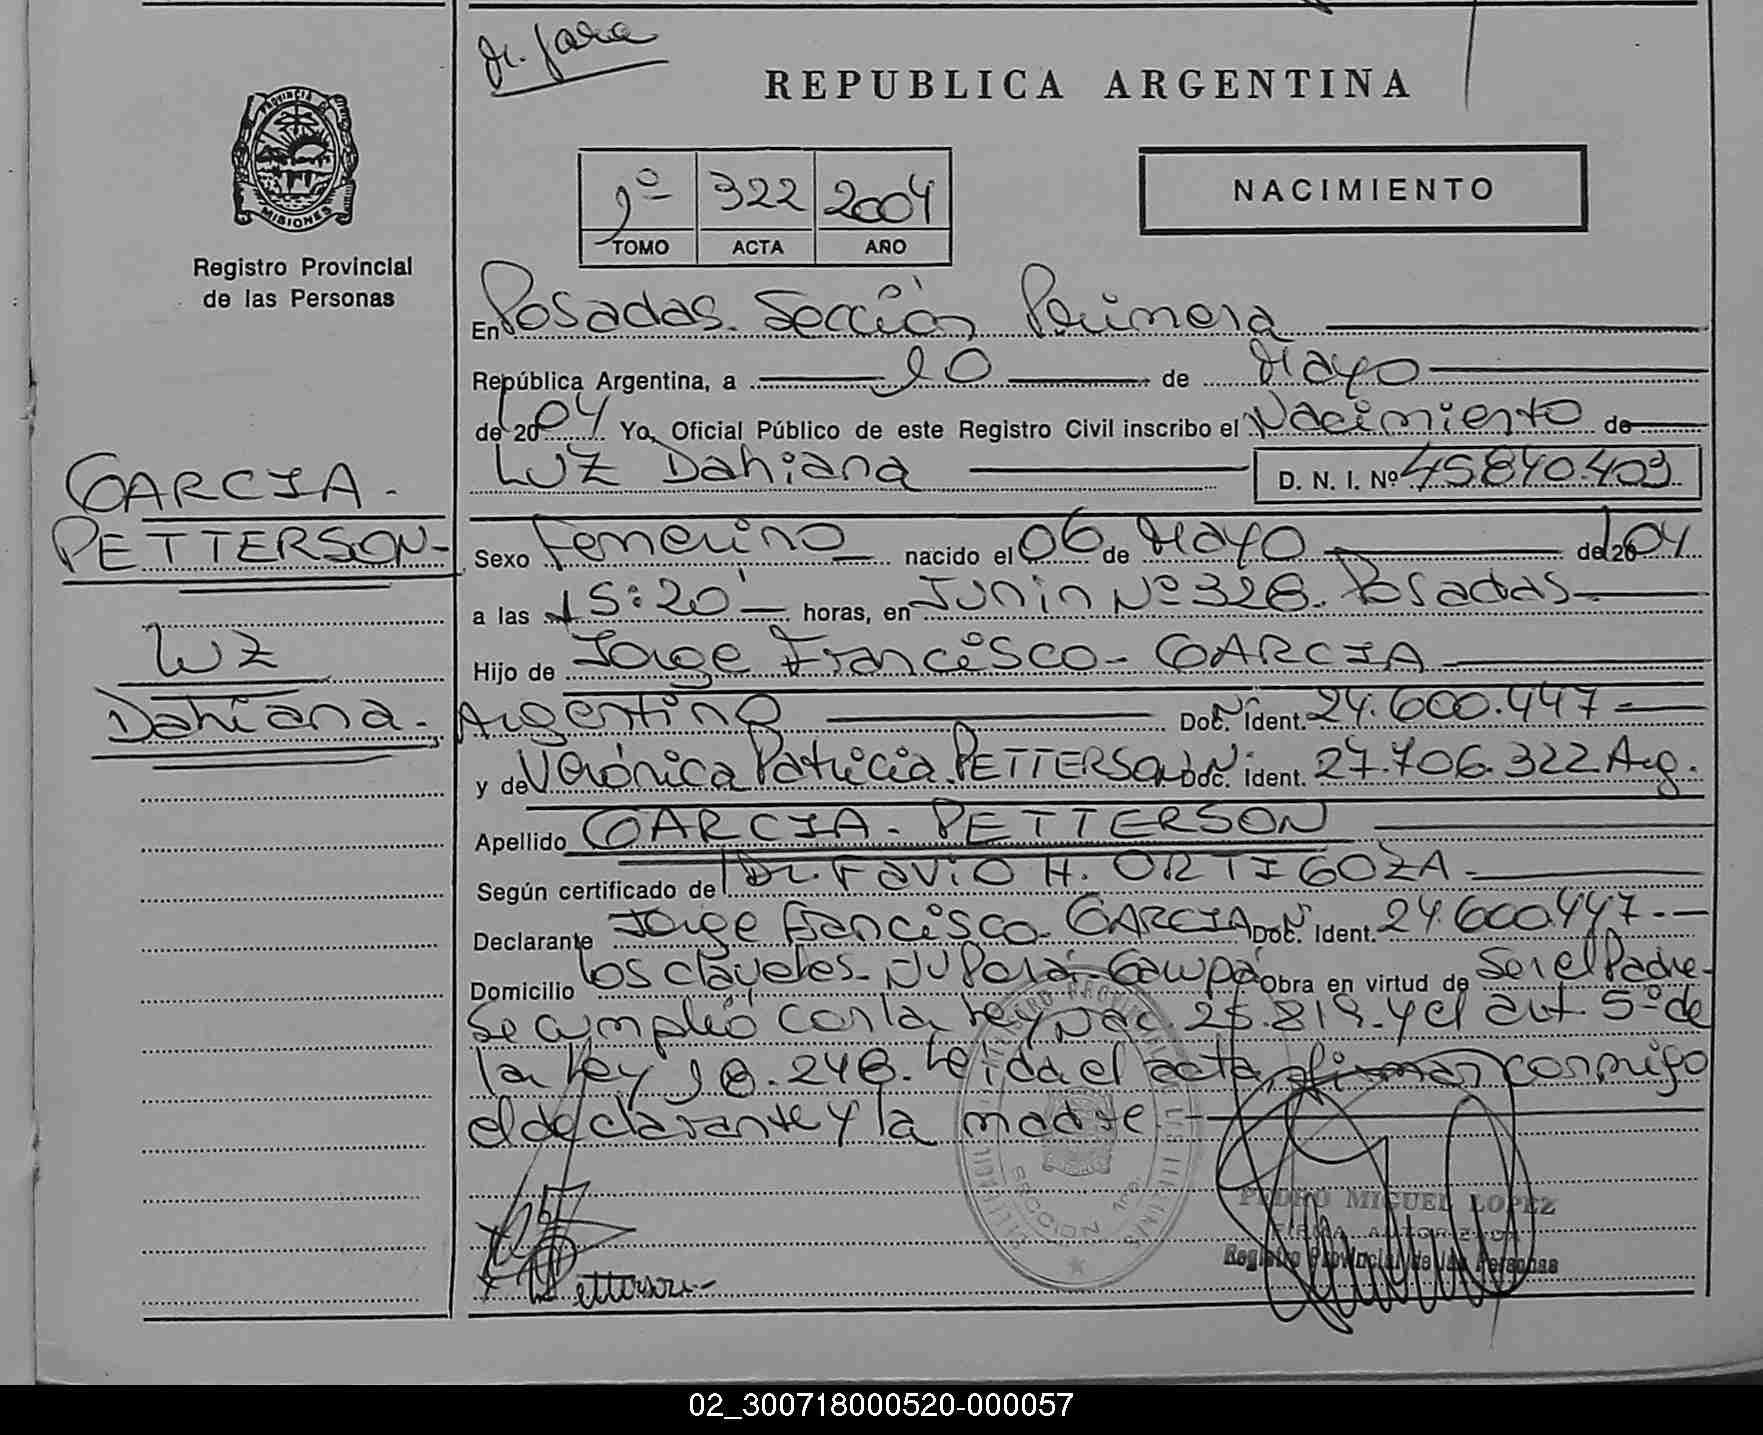 Dr. Jara
REPUBLICA ARGENTINA
PROVINCIA DE
MISIONES
Registro Provincial
de las Personas
1º 322 2004
TOMO ACTA AÑO
NACIMIENTO
En Posadas. Sección Primera
República Argentina, a 10 de Mayo
de 2004 Yo, Oficial Público de este Registro Civil inscribo el Nacimiento de
Luz Dahiana D. N. I. Nº 45.840.403
GARCIA-
PETTERSON-
Luz
Dahiana.
Sexo Femenino nacido el 06 de Mayo de 2004
a las 15:20' horas, en Junin Nº 328. Posadas
Hijo de Jorge Francisco GARCIA
Argentino Doc. Ident. 24.600.447
y de Verónica Patricia PETTERSON Doc. Ident. 27.706.322 Arg.
Apellido GARCIA-PETTERSON
Según certificado de Dr. Favio H. ORTIGOZA
Declarante Jorge Francisco GARCIA Doc. Ident. 24.600.447.-
Domicilio los claveles- Obra en virtud de Ser el Padre-
Se cumplió con la Ley Nac. 25.819-y el art. 5º de
la Ley 18.248. Leída el acta, firman conmigo
el declarante y la madre
SECCION 1RA.
Petterson-
PEDRO MIGUEL LOPEZ
FIRMA AUTORIZADA
Registro Provincial de las Personas
02_300718000520-000057